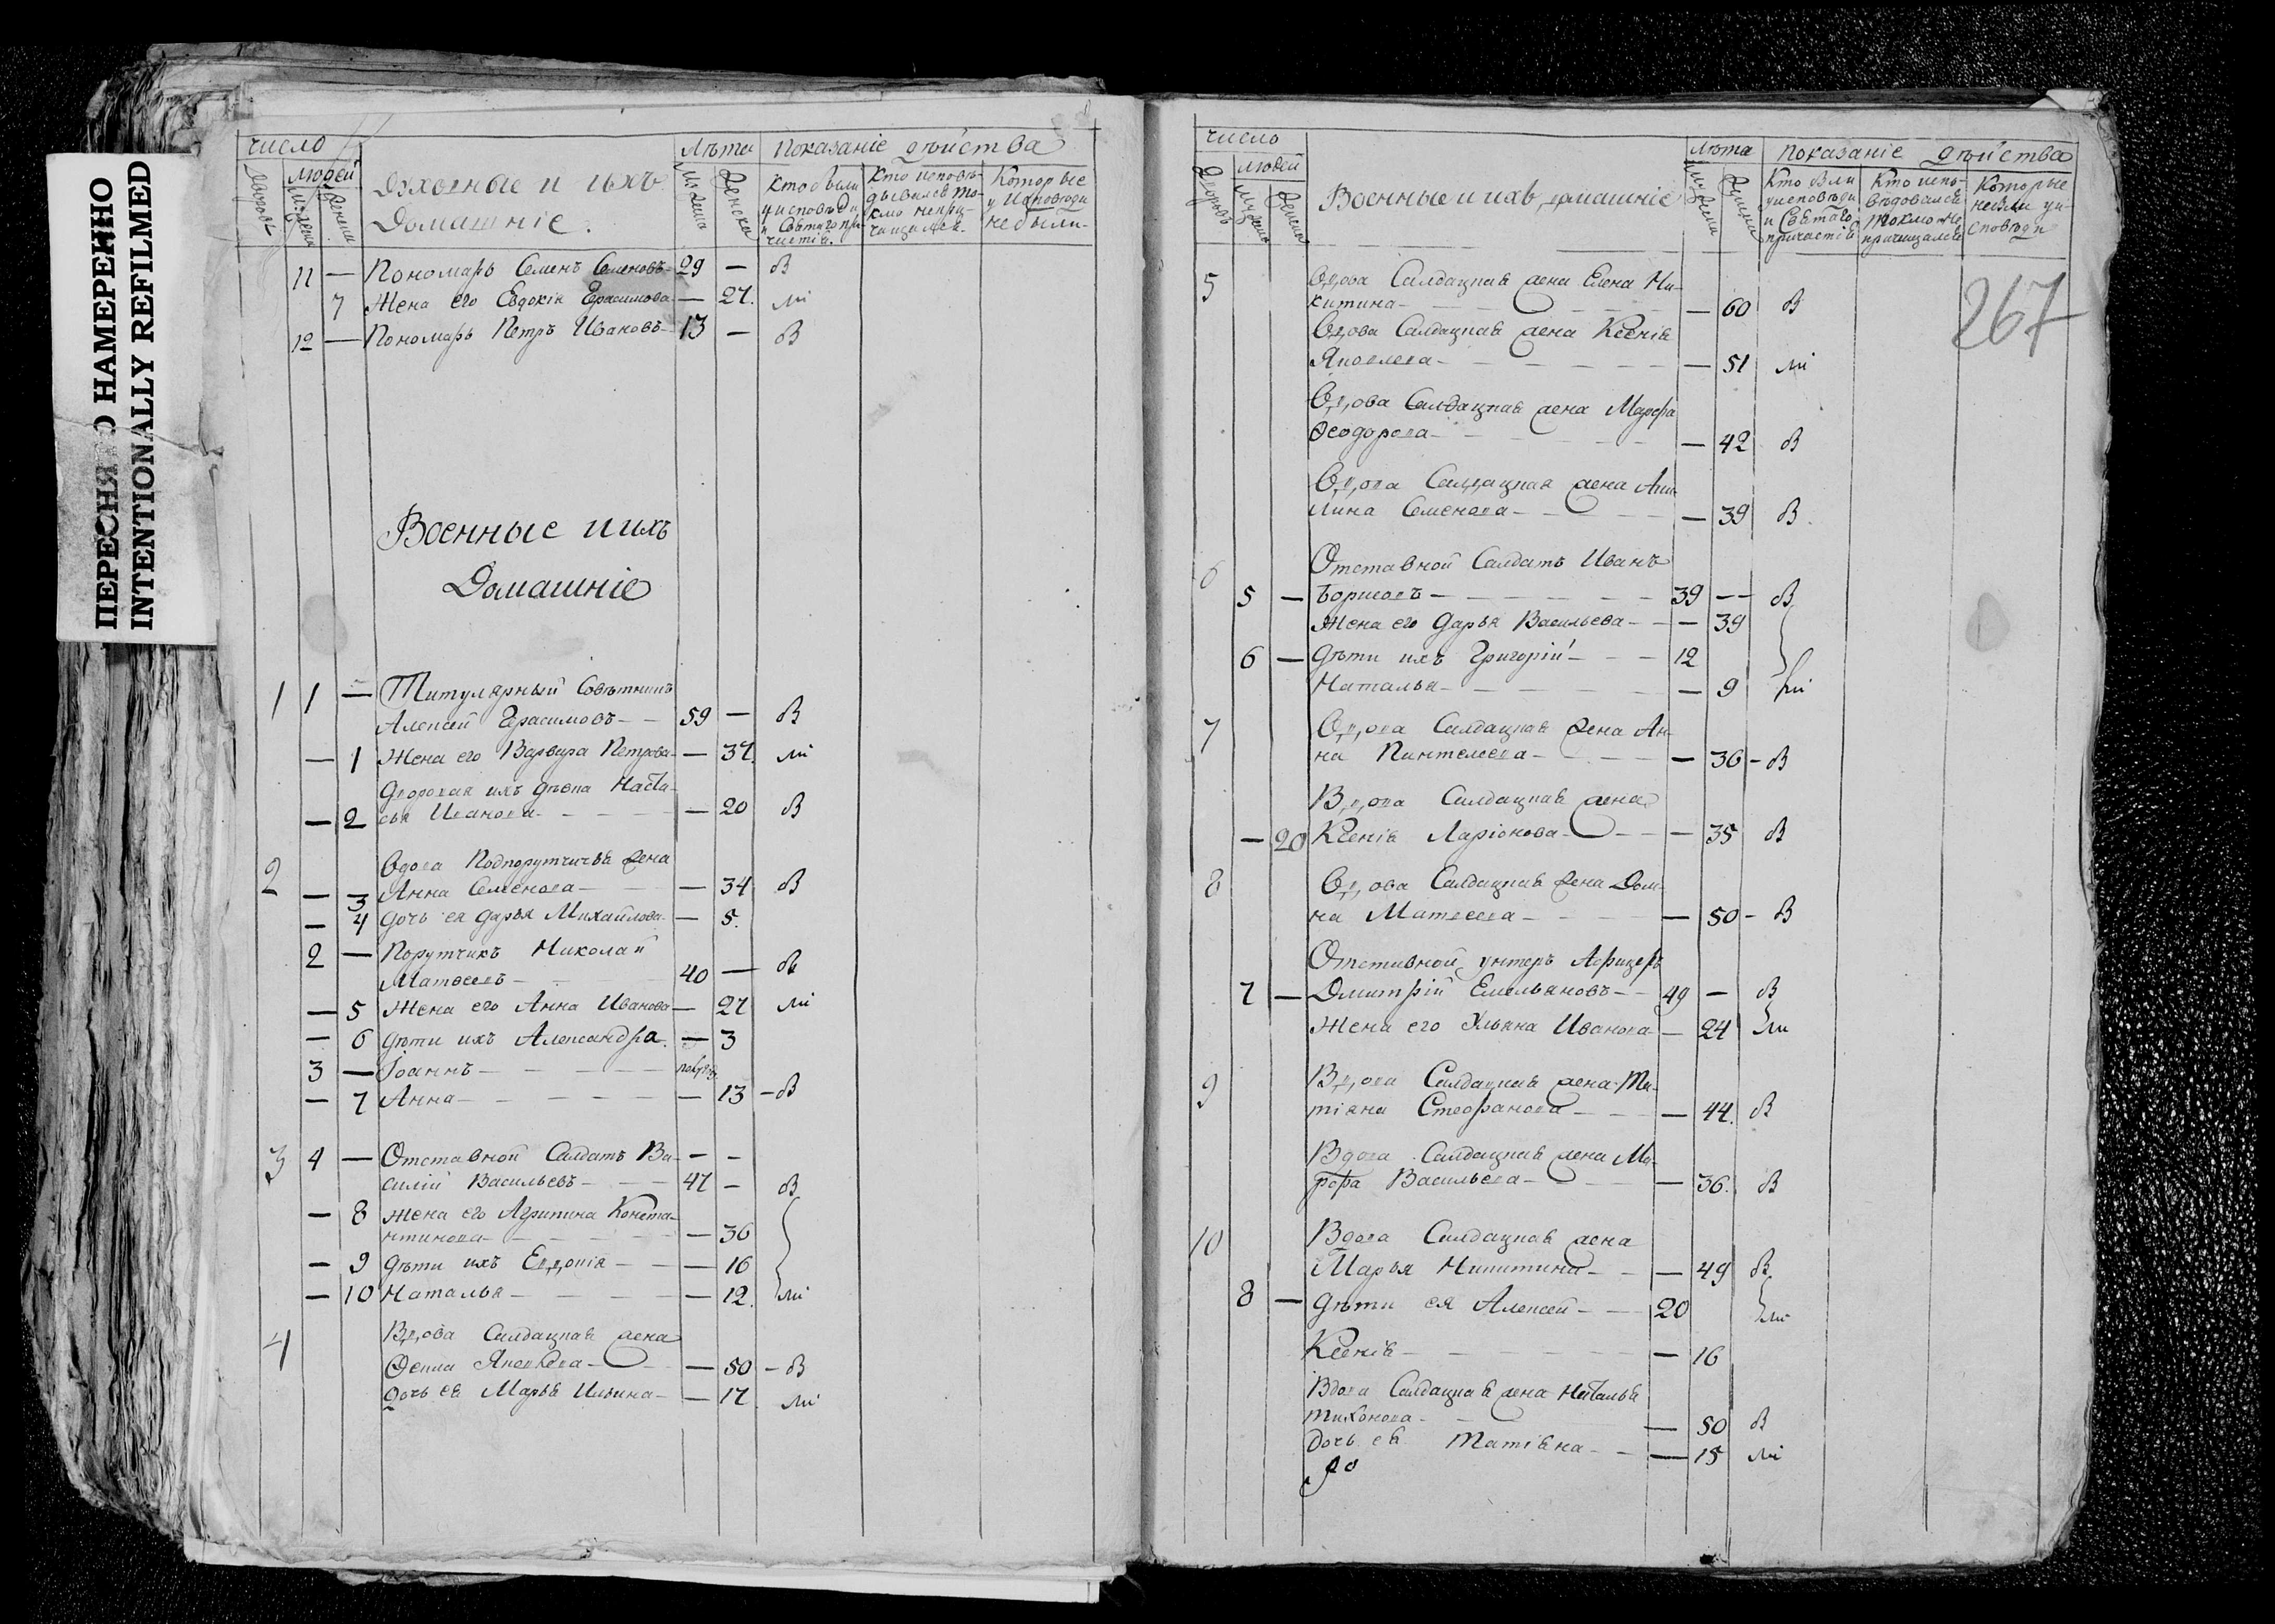 ПЕРЕСНЯТО НАМЕРЕННО
INTENTIONALLY REFILMED
число
Лѣта Показаніе дѣйства
людей
Дворовъ
Мужеска
Женска
Духовные и ихъ
Домашніе.
Мужеска
Женска
Кто были у исповѣди и Святаго причастія.
Кто исповѣдывался токмо непричащался.
Которые у Исповѣди небыли
11 — Пономарь Семенъ Семеновъ 29 — В
7 Жена его Евдокія Герасимова — 27. ли
12 — Пономарь Петръ Ивановъ 13 — В
Военные и ихъ
Домашніе
1 1 — Титулярный Совѣтникъ
Алексѣй Герасимовъ — 59 — В
— 1 Жена его Варвара Петрова — 37. ли
Дворовая ихъ дѣвка Наста-
— 2 сья Иванова — 20 В
2 Вдова Подпорутчичья жена
— 3 Анна Семенова — 34 В
— 4 дочь ея Дарья Михайлова — 5.
2 — Порутчикъ Николай
Матвеевъ 40 — въ
— 5 Жена его Анна Иванова — 27 ли
— 6 дѣти ихъ Александра — 3
3 — Іоаннъ
— 7 Анна — 13 — В
3 4 — Отставной Салдатъ Ва- — —
силій Васильевъ — 47 — В
— 8 жена его Агрипина Конста-
нтинова — 36
— 9 дѣти ихъ Евдокія — 16
— 10 Наталья — 12. ли
4 Вдова Салдацкая жена
Ѳекла Яковлева — 50 — В
дочь ея Марья Ильина — 17. ли
число
людей
Дворовъ
Мужеска
Женска
Военные и ихъ домашніе
Лѣта Показаніе дѣйства
Мужеска
Женска
Кто были уисповѣди и Святаго причастія
Кто исповѣдовался токмо не причащался
Которые небыли уисповѣди
267
5 Вдова Салдацкая жена Елена Ни-
китина — 60 В
Вдова Салдацкая жена Ксенія
Яковлева — 51 ли
Вдова Салдацкая жена Марфа
Ѳеодорова — 42 В
Вдова Салдацкая жена Аки-
лина Семенова — 39 В
6 Отставной Салдатъ Иванъ
5 — Борисовъ — 39 — В
Жена его Дарья Васильева — 39
6 — дѣти ихъ Григорій — 12
Наталья — 9 ли
7 Вдова Салдацкая жена Ан-
на Пантелеева — 36 — В
Вдова Салдацкая жена
— 20 Ксенія Ларіонова — 35 В
8 Вдова Салдацкая жена Дом-
на Матвеева — 50 — В
Отставной унтеръ Афицеръ
7 — Дмитрій Емельяновъ — 49 — В
Жена его Ульяна Иванова — 24 ли
9 Вдова Салдацкая жена Та-
тіяна Стефанова — 44. В
Вдова Салдацкая жена Ма-
рфа Васильева — 36. В
10 Вдова Салдацкая жена
Марья Никитина — 49 В
8 — дѣти ея Алексей — 20 ли
Ксенія — 16
Вдова Салдацкая жена Наталья
Тихонова — 50 В
дочь ея Татіяна — 15 ли